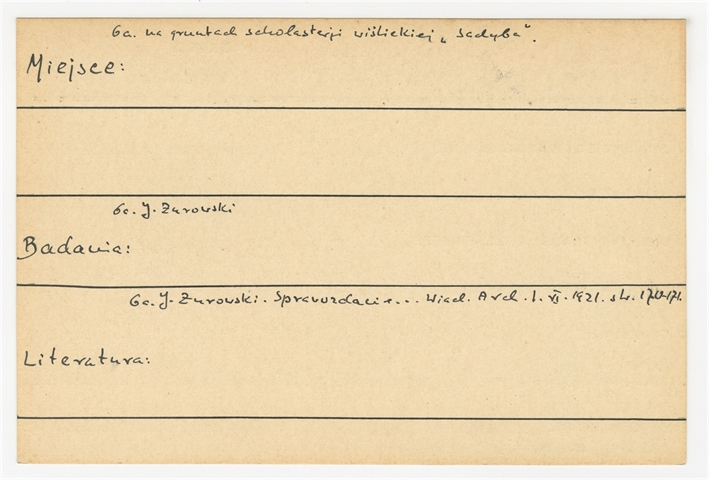 6a. na gruntach scholasterji wiślickiej „Sadyba".
Miejsce:
6a. J. Żurowski
Badania:
6a. J. Żurowski. Sprawozdanie... Wiad. Arch. t. VI. 1921. str. 170-171.
Literatura: